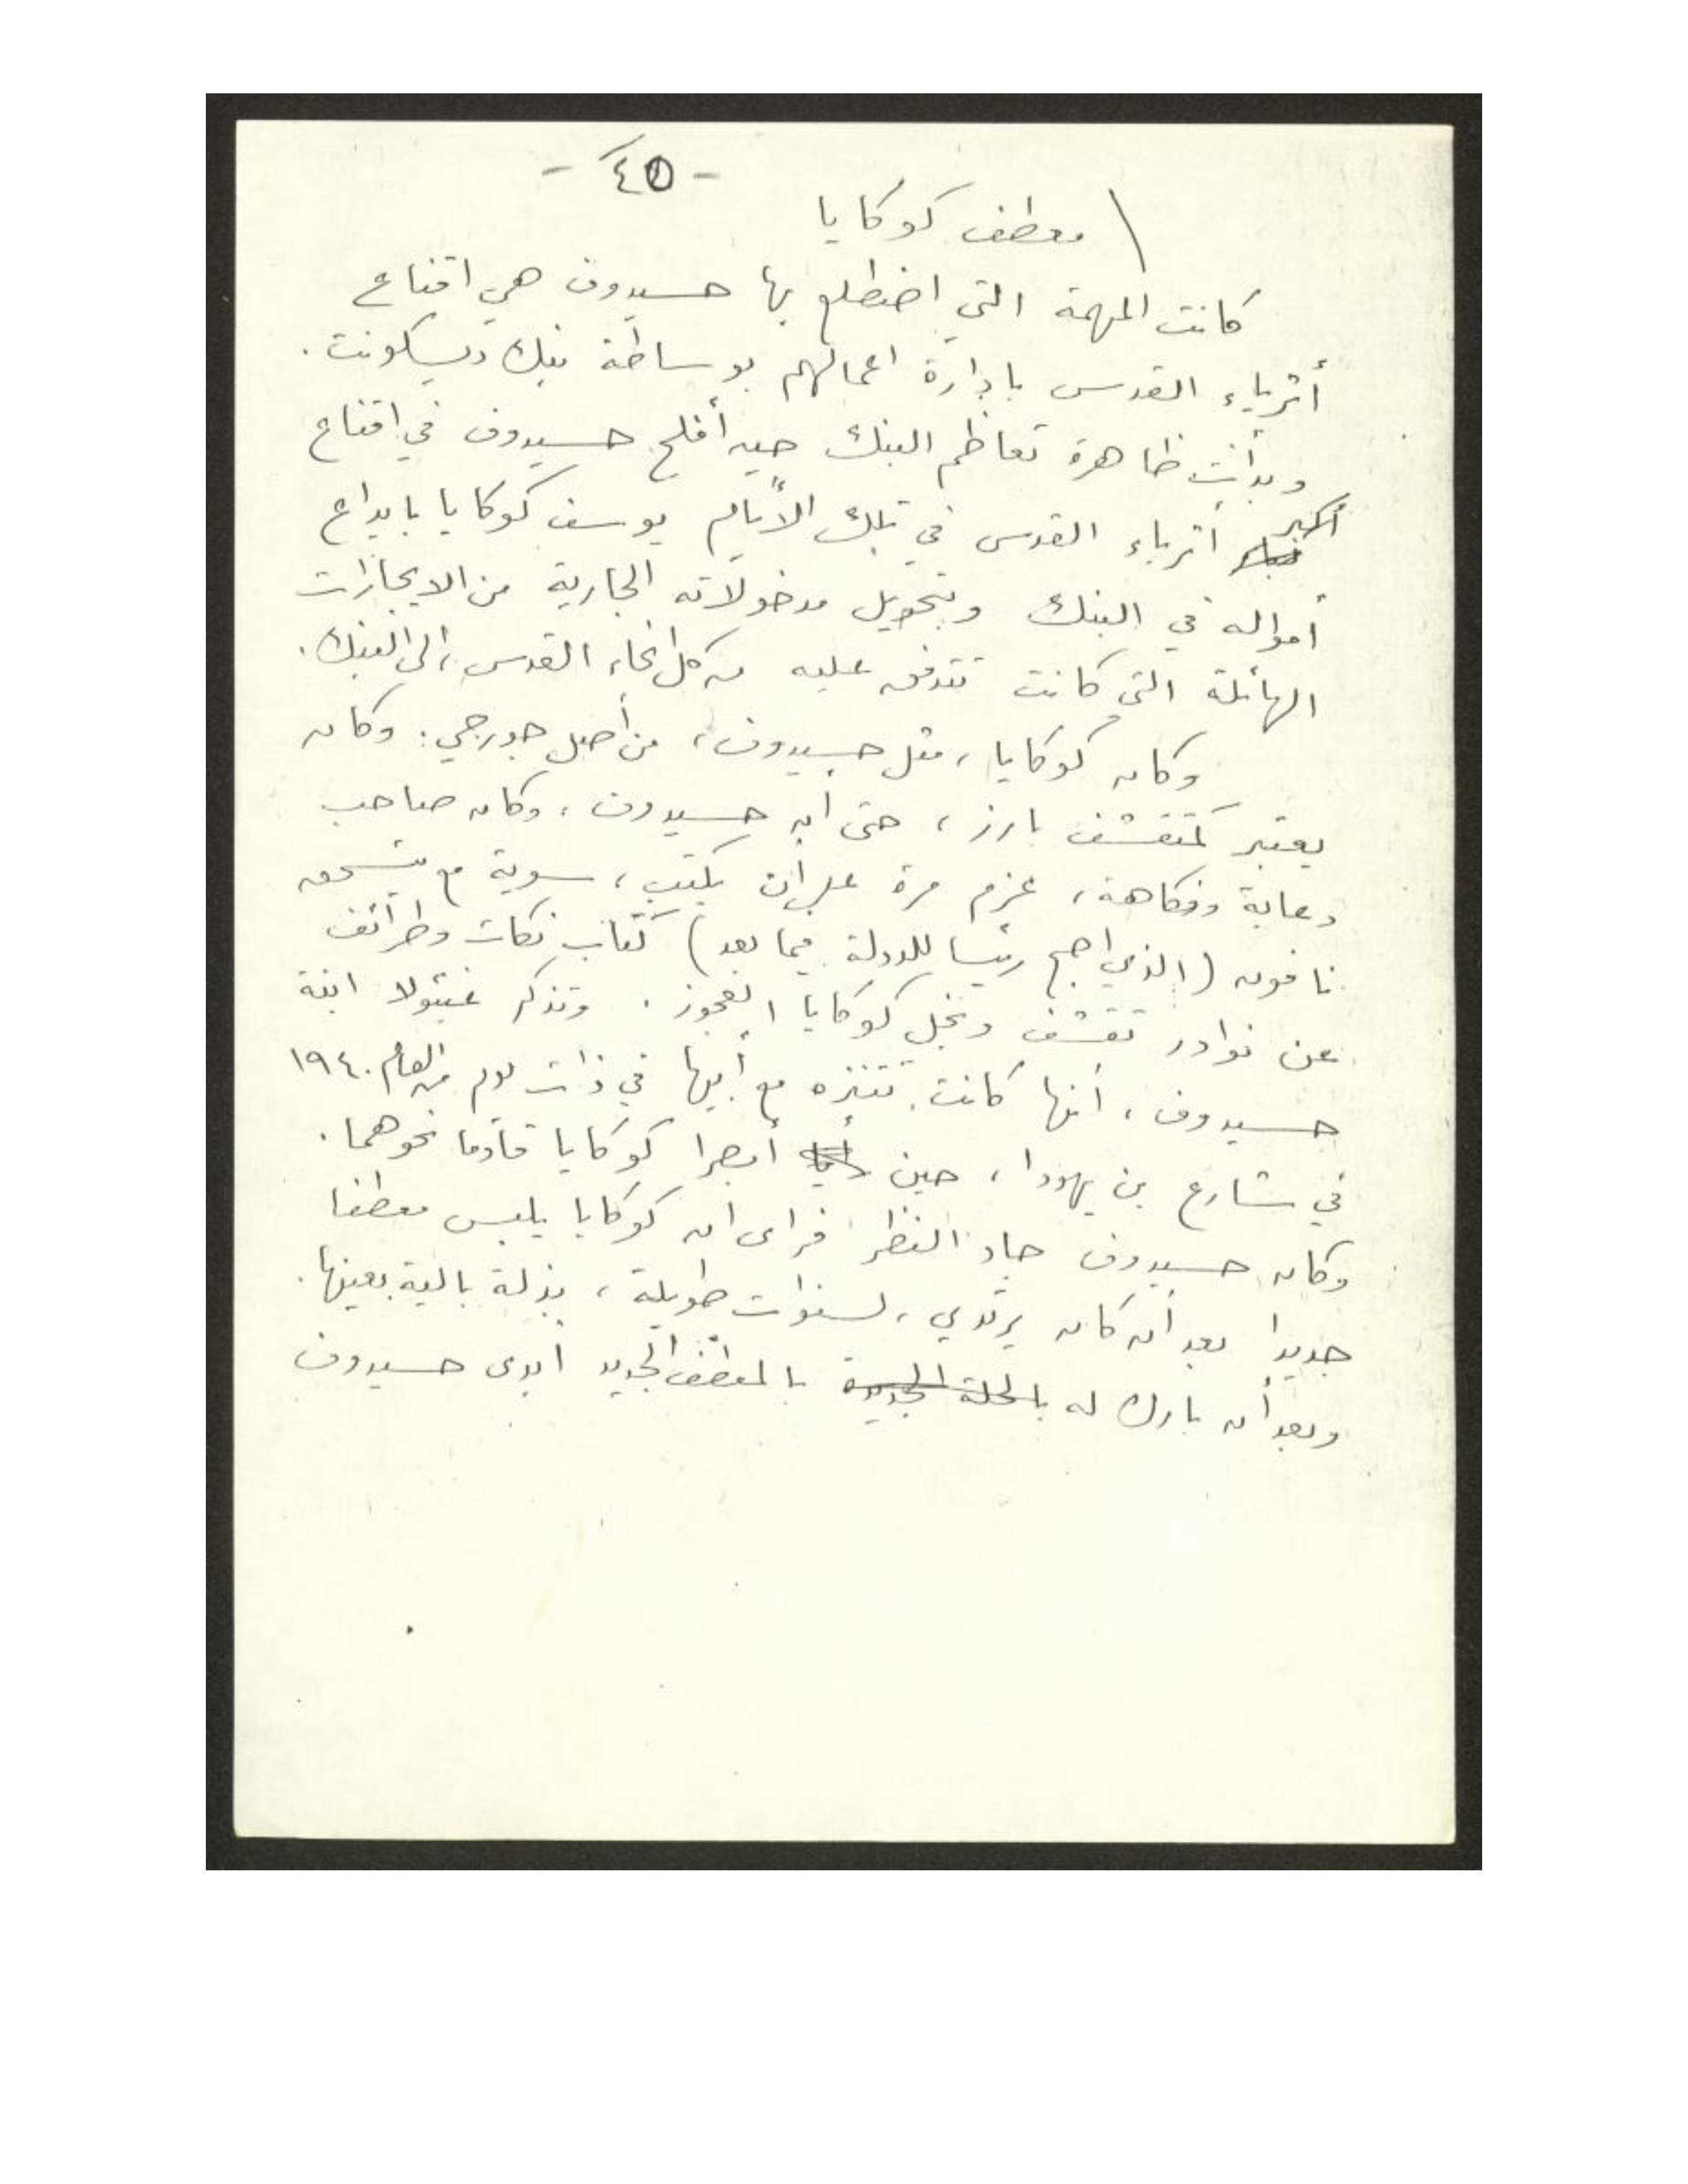 - ٤٥ -
معطف كوكايا
كانت المهمة التي اضطلع بها حسيدوف هي اقناع
أثرياء القدس بادارة اعمالهم بوساطة بنك ديسكونت.
وبدأت ظاهرة تعاظم البنك حين أفلح حسيدوف في اقناع
أكبر أثرياء القدس في تلك الأيام يوسف كوكايا بايداع
أمواله في البنك وتحويل مدخولاته الجارية من الايجارات
الهائلة التي كانت تتدفق عليه من كل انحاء القدس، الى البنك.
وكان كوكايا، مثل حسيدوف، من أصل جورجي. وكان
يعتبر كمتقشف بارز، حتى أن حسيدوف، وكان صاحب
دعابة وفكاهة، عزم مرة على ان يكتب، سوية مع يتسحق
نافون (الذي اصبح رئيسا للدولة فيما بعد) كتاب نكات وطرائف
عن نوادر تقشف وبخل كوكايا العجوز. وتذكر غيئولا ابنة
حسيدوف، أنها كانت تتنزه مع أبيها في ذات يوم من العام ١٩٤٠
في شارع بن يهودا، حين أبصرا كوكايا قادما نحوهما.
وكان حسيدوف حاد النظر فرأى ان كوكايا يلبس معطفا
جديدا بعد أن كان يرتدي، لسنوات طويلة، بذلة بالية بعينها.
وبعد أن بارك له بالحلة الجديدة بالمعطف الجديد ابدى حسيدوف